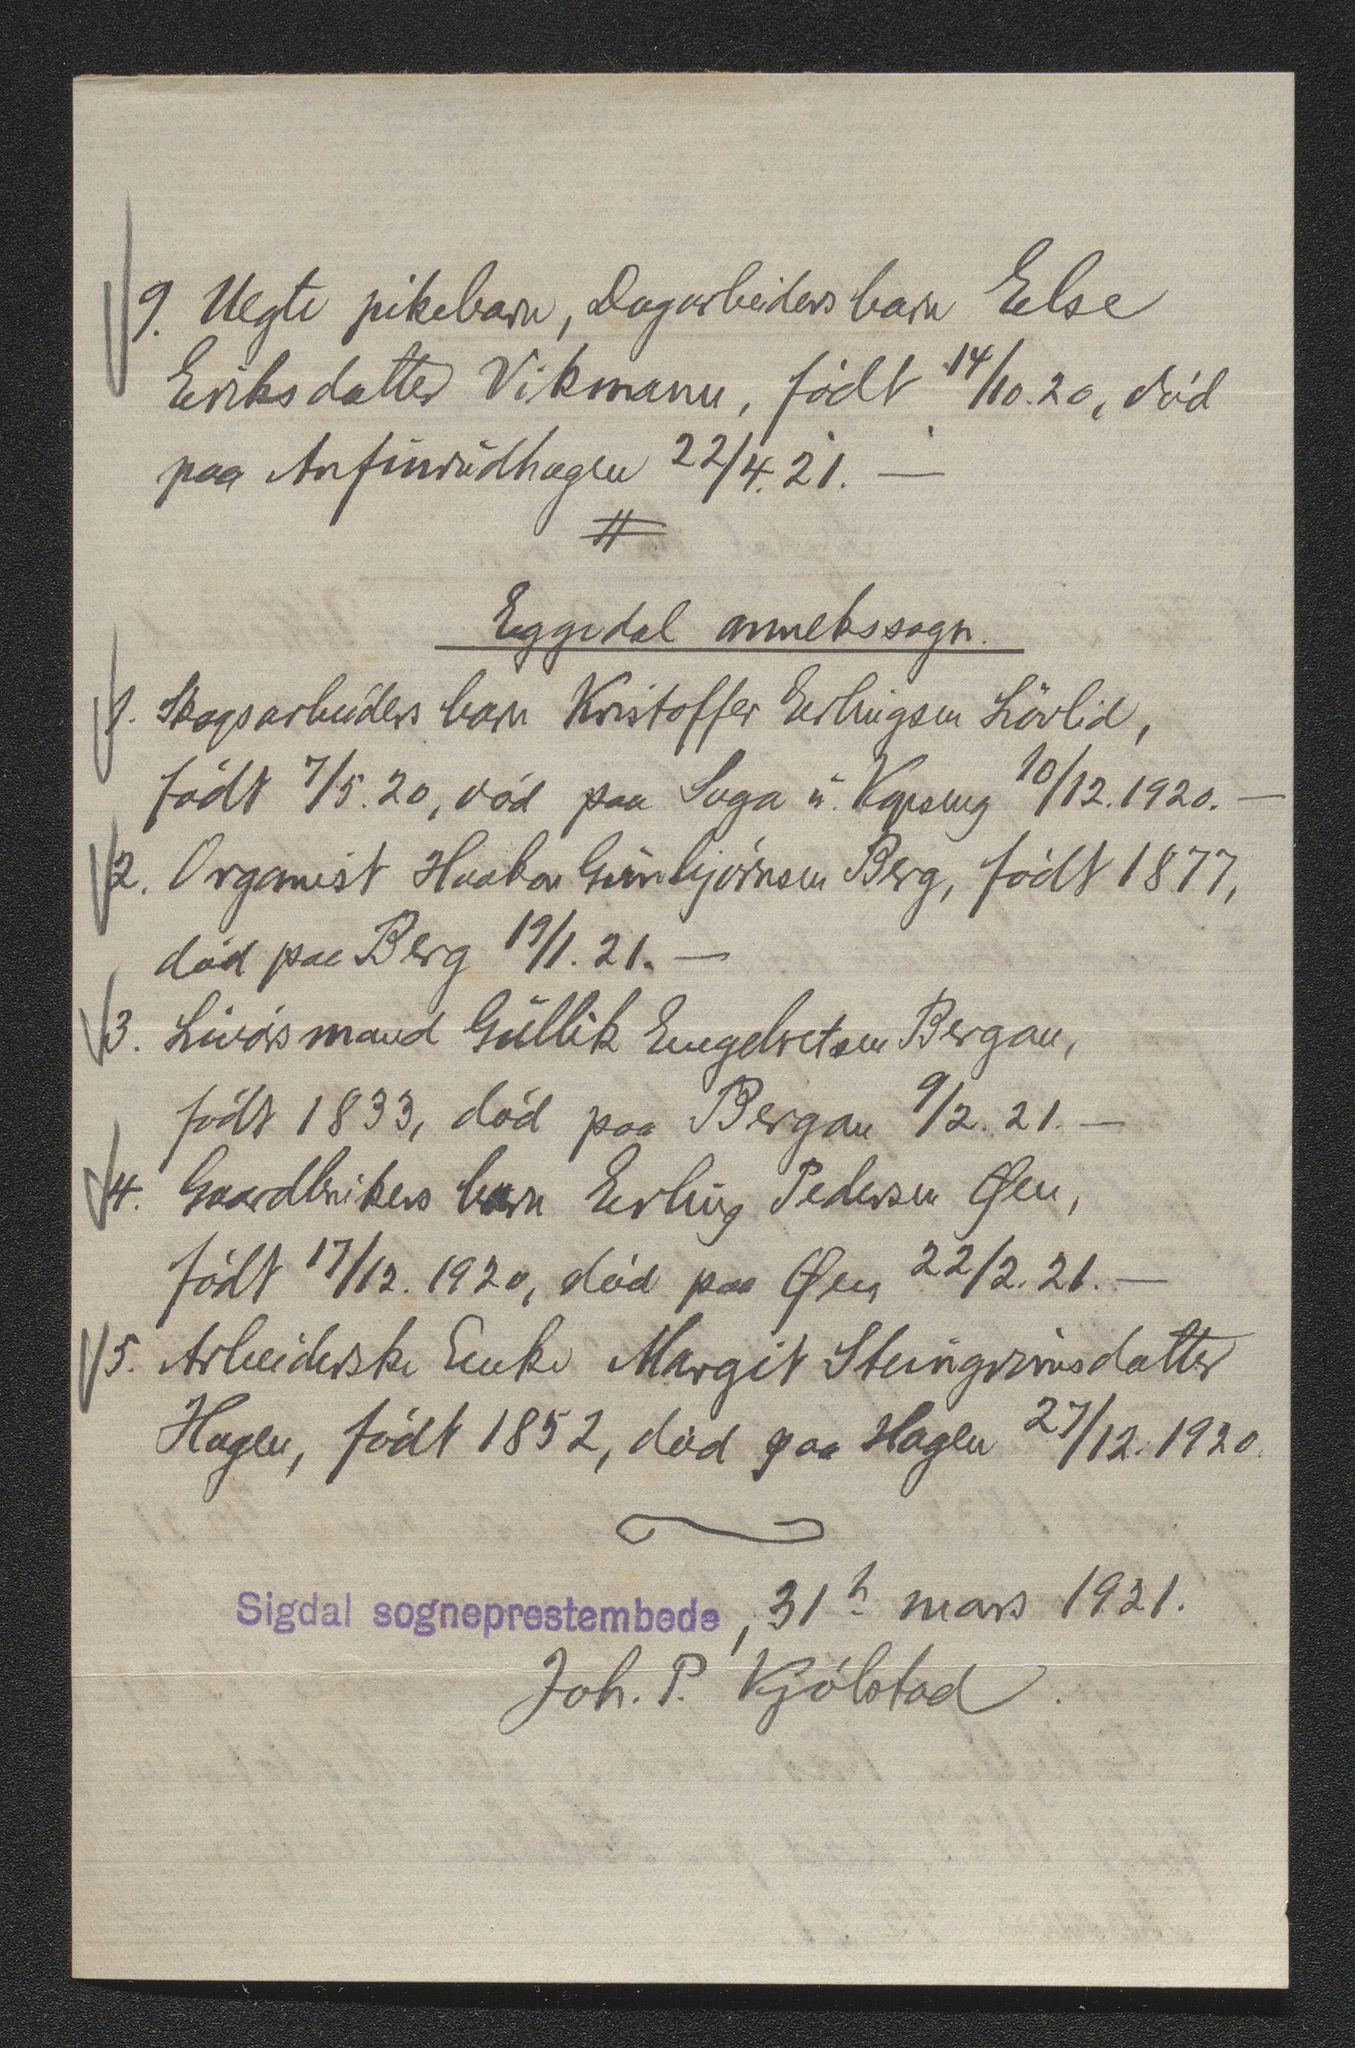 9. Uegte pikebarn, Dagarbeiders barn Else
Eriksdatter Vikmann, født 14/10.20, död
paa Anfinrudhagen 22/4.21. —
Eggedal annekssogn.
1. Skogsarbeiders barn Kristoffer Erlingsen Lövlid,
födt 7/5.20, död paa Saga u. 10/12.1920. —
2. Organist Haakon Gunbjörnsen Berg, födt 1877,
död paa Berg 19/1.21. —
3. Livörsmand Gullik Engebretsen Bergan,
födt 1833, död paa Bergan 9/2.21. —
4. Gaardbrukers barn Erling Pedersen Øen,
födt 17/12.1920, död paa Øen 22/2.21. —
5. Arbeiderske Enke Margit Steingrimsdatter
Hagen, födt 1852, död paa Hagen 27/12.1920.
Sigdal sogneprestembede, 31h mars 1921.
Joh. P. Kjölstad.